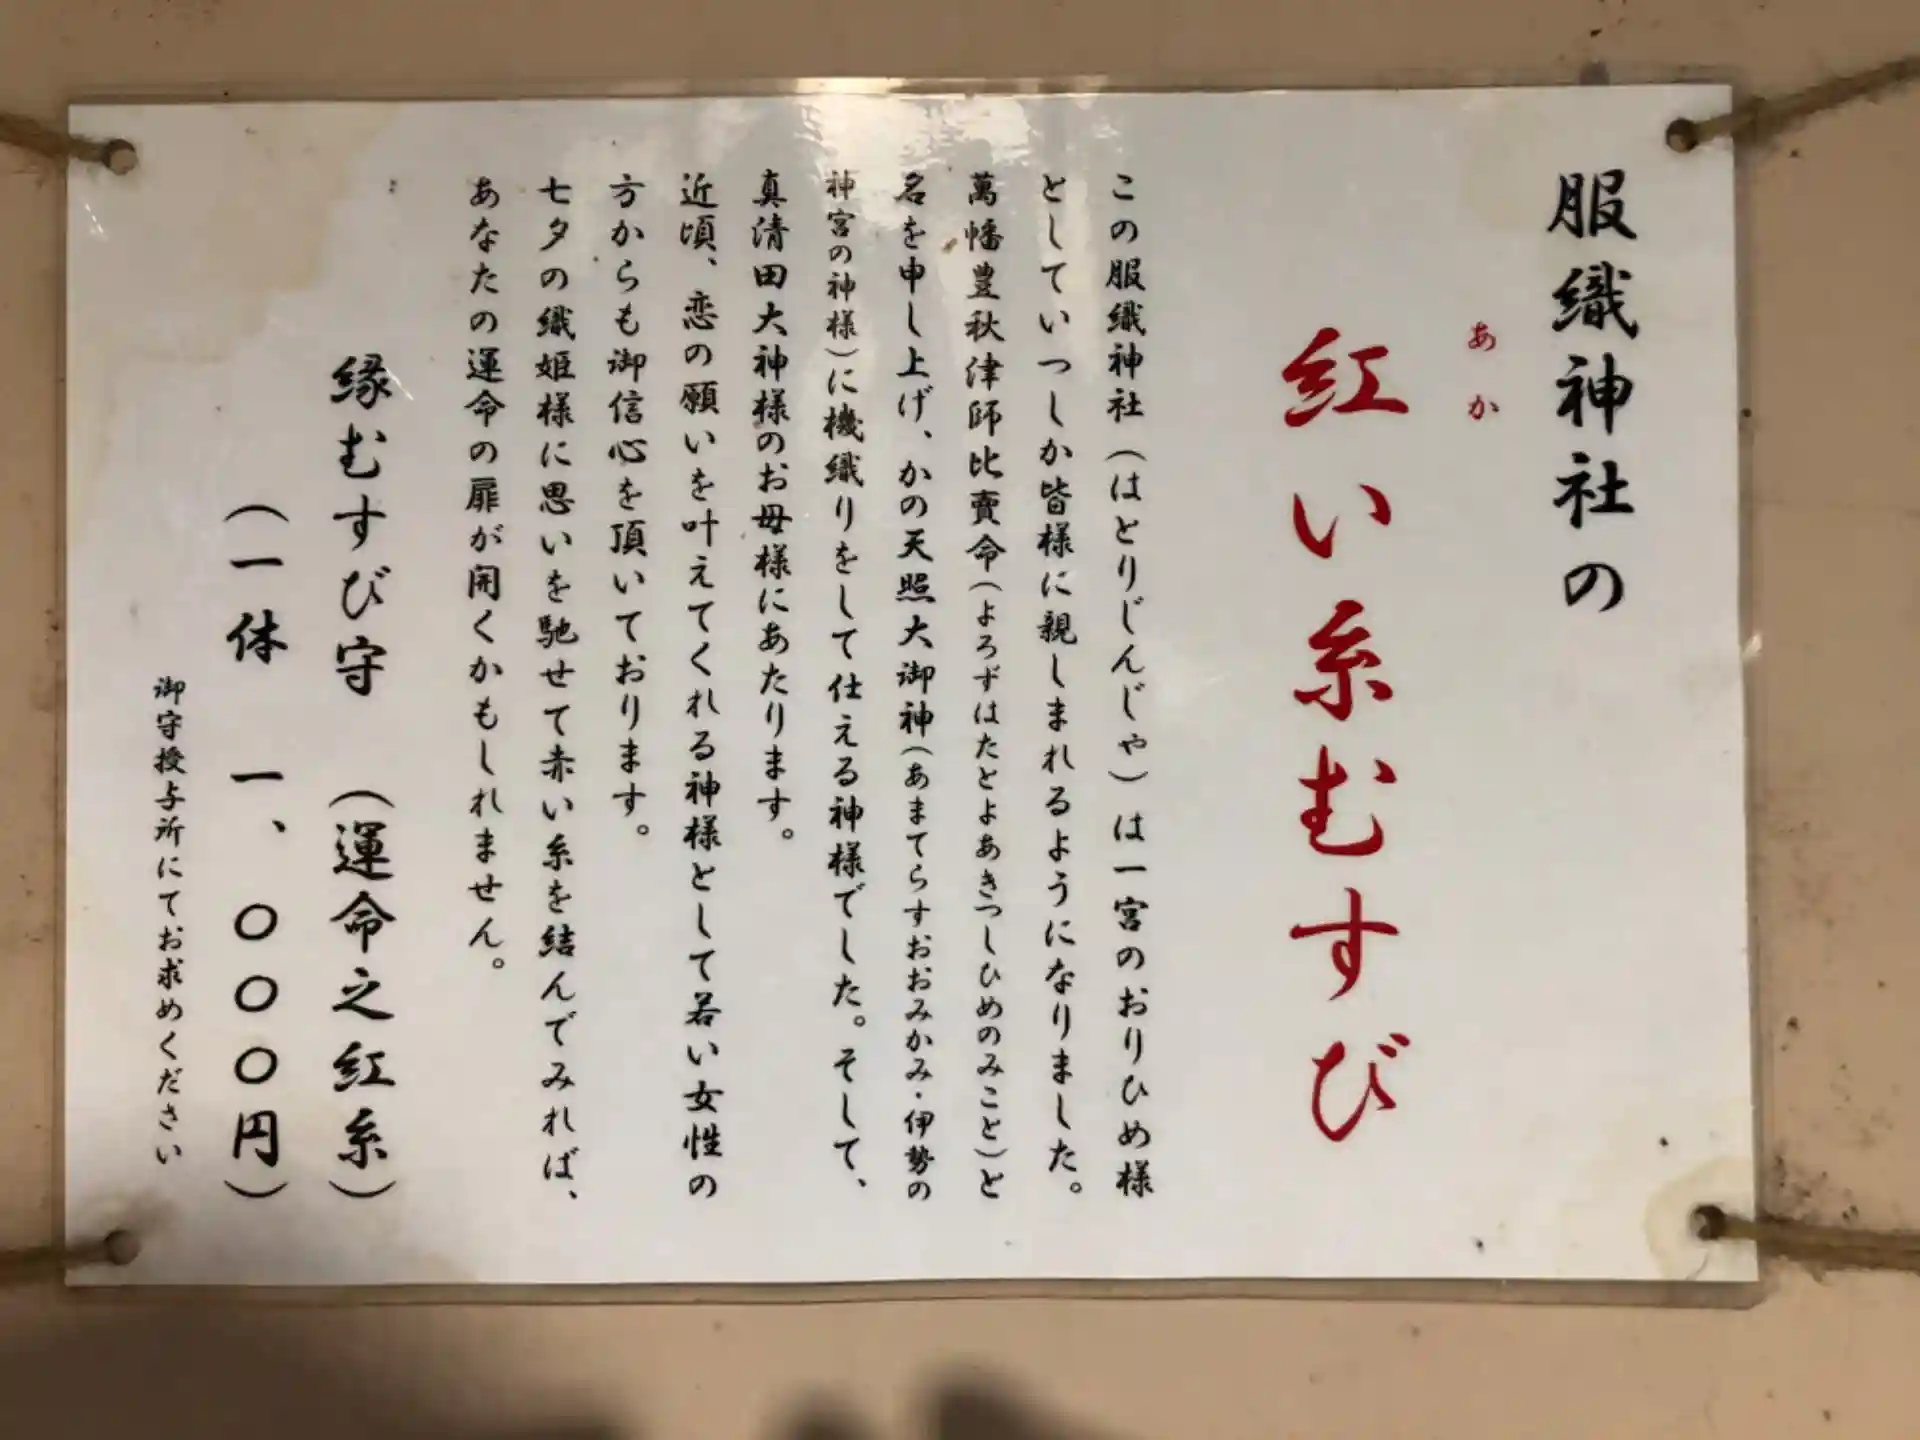 服織神社の
あか
紅い糸むすび
この服織神社(はとりじんじゃ)は一宮のおりひめ様
としていつしか皆様に親しまれるようになりました。
萬幡豊秋津師比賣命(よろずはたとよあきつしひめのみこと)と
名を申し上げ、かの天照大御神(あまてらすおおみかみ・伊勢の
神宮の神様)に機織りをして仕える神様でした。そして、
真清田大神様のお母様にあたります。
近頃、恋の願いを叶えてくれる神様として若い女性の
方からも御信心を頂いております。
七夕の織姫様に思いを馳せて赤い糸を結んでみれば、
あなたの運命の扉が開くかもしれません。
縁むすび守 (運命之紅糸)
(一体 一、〇〇〇円)
御守授与所にてお求めください